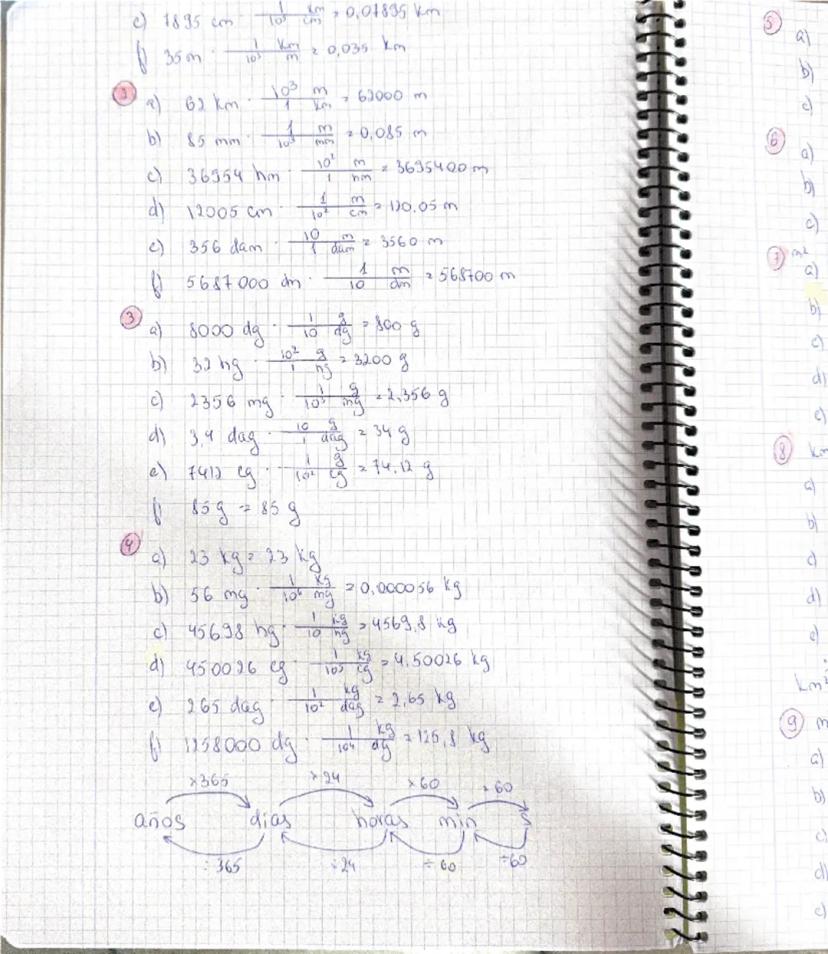 e) 1895 cm · 1/10⁵ km/cm = 0,01895 km
f) 35 m · 1/10³ km/m = 0,035 km
2
a) 62 km · 10³/1 m/km = 62000 m
b) 85 mm · 1/10³ m/mm = 0,085 m
c) 36954 hm · 10²/1 m/hm = 3695400 m
d) 12005 cm · 1/10² m/cm = 120.05 m
e) 356 dam · 10/1 m/dam = 3560 m
f) 5687000 dm · 1/10 m/dm = 568700 m
3
a) 8000 dg · 1/10 g/dg = 800 g
b) 32 hg · 10²/1 g/hg = 3200 g
c) 2356 mg · 1/10³ g/mg = 2,356 g
d) 3,4 dag · 10/1 g/dag = 34 g
e) 7412 cg · 1/10² g/cg = 74,12 g
f) 85 g = 85 g
4
a) 23 kg = 23 kg
b) 56 mg · 1/10⁶ kg/mg = 0,000056 kg
c) 45698 hg · 1/10 kg/hg = 4569,8 kg
d) 450026 cg · 1/10⁵ kg/cg = 4,50026 kg
e) 265 dag · 1/10² kg/dag = 2,65 kg
f) 1258000 dg · 1/10⁴ kg/dg = 125,8 kg
×365 ×24 ×60 ×60
años días horas min s
÷365 ÷24 ÷60 ÷60
5
a)
b)
c)
6
a)
b)
c)
7 m²
a)
b)
c)
d)
e)
8 km
a)
b)
c)
d)
e)
km²
9 m
a)
b)
c)
d)
e)